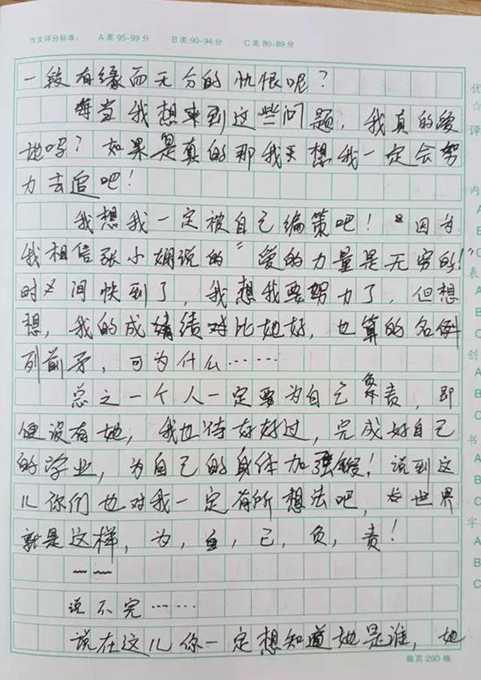 作文评分标准： A类 95-99分 B类 90-94分 C类 80-89分
一段有缘而无分的仇恨呢？
每当我想来到这些问题，我真的爱
她吗？如果是真的那我天想我一定会努
力去追吧！
我想我一定被自己编策吧！“因为
我相信张小娴说的“爱的力量是无穷的！”
时间快到了，我想我要努力了，但想
想，我的成绩对比她好，也算的名列
列前矛，可为什么……
总之一个人一定要为自己负责，即
便没有她，我也待好好过，完成好自己
的学业，为自己的身体加强锻！说到这
儿你们也对我一定有所想法吧，世界
就是这样，为，自，己，负，责！
说不完……
说在这儿你一定想知道她是谁，她